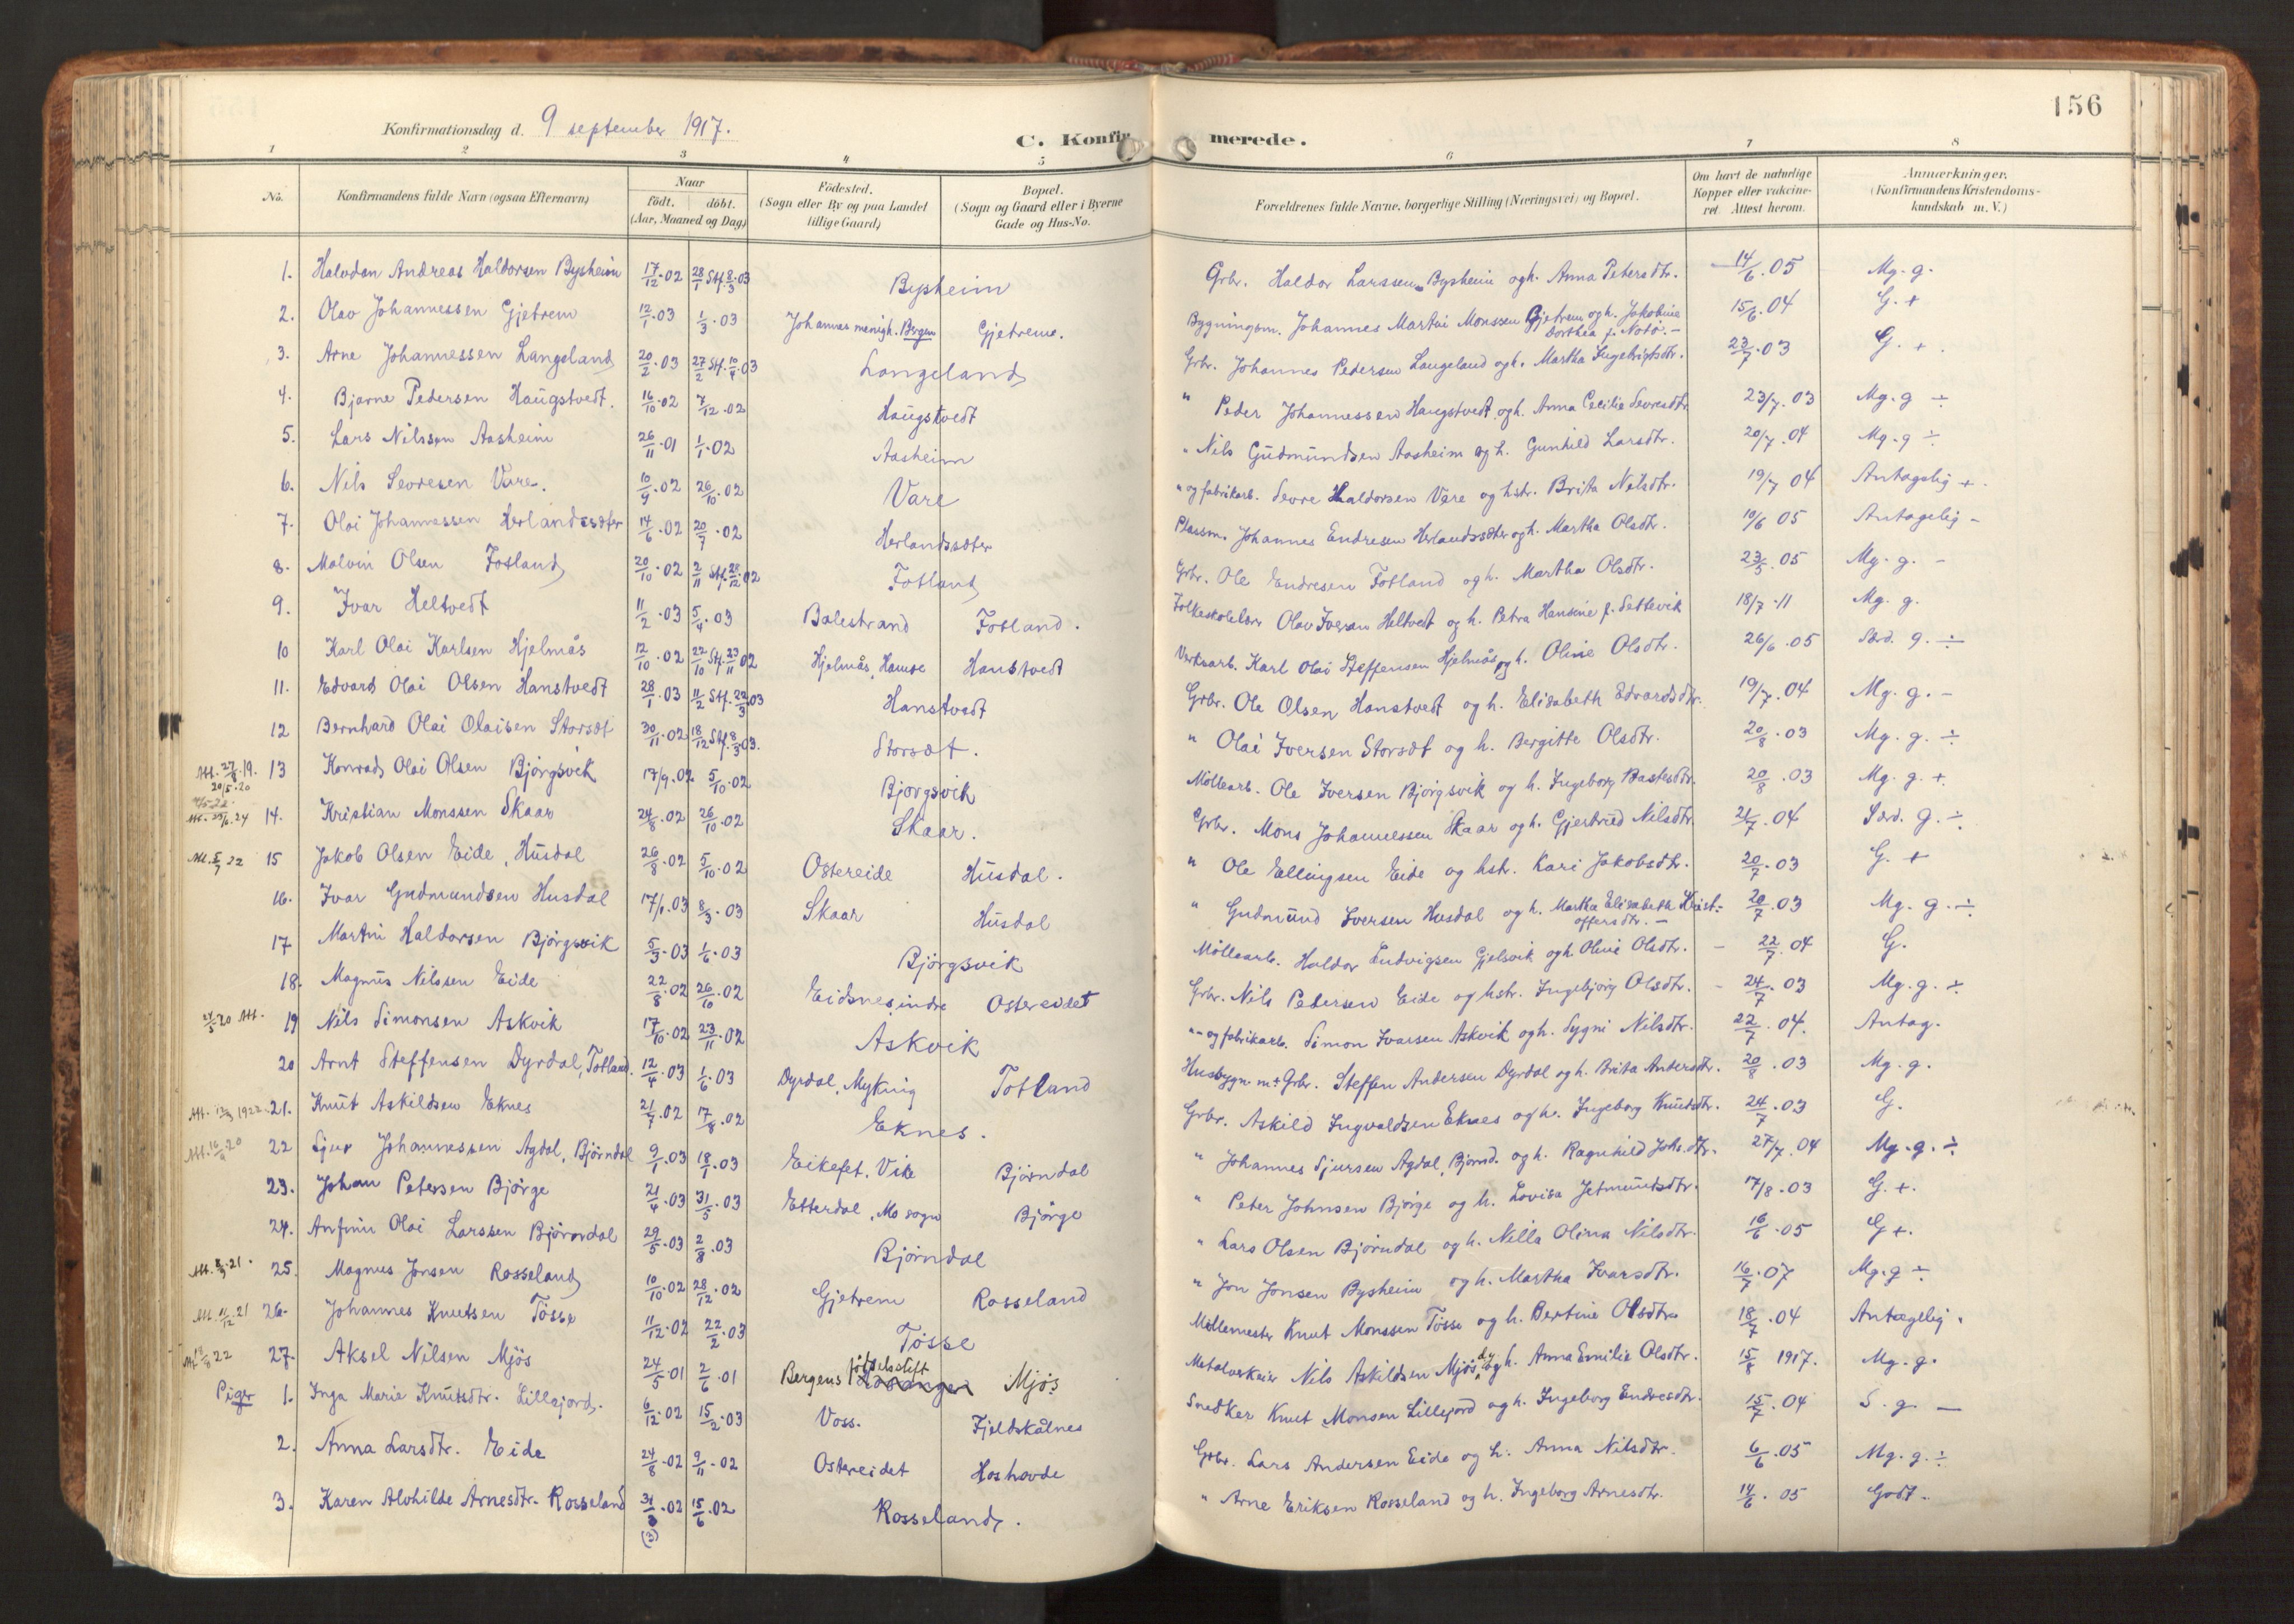 156
Konfirmationsdag d. 9 september 1917.
C. Konfirmerede.
1 2 3 4 5 6 7 8
No. Konfirmandens fulde Navn (ogsaa Efternavn) Naar født. døbt. (Aar, Maaned og Dag) Fødested. (Sogn eller By og paa Landet tillige Gaard) Bopæl. (Sogn og Gaard eller i Byerne Gade og Hus-No. Forældrenes fulde Navne, borgerlige Stilling (Næringsvei) og Bopæl. Om havt de naturlige Kopper eller vakcineret. Attest herom. Anmærkninger. (Konfirmandens Kristendomskundskab m. V.)
1. Halvdan Andreas Haldorsen Bysheim 17/12.02 28/1 Stf. 8/3.03 Bysheim Grbr. Haldor Larssen Bysheim og h. Anna Petersdtr. 14/6.05 Mg. g.
2. Olav Johannessen Gjetrem 12/1.03 1/3.03 Johannes menigh. Bergen Gjetreme. Bygningsm. Johannes Martin Monssen Gjetrem og h. Jakobine Dorthea f. Notø. 15/6.04 G. +
3. Arne Johannessen Langeland 20/2.03 27/2 Stf. 10/4.03 Langeland Grbr. Johannes Pedersen Langeland og h. Martha Ingebrigtsdtr. 23/7.03 G. +.
4. Bjarne Pedersen Haugstvedt. 16/10.02 7/12.02 Haugstvedt " Peder Johannessen Haugstvedt og h. Anna Cecilie Sevresdtr. 23/7.03 Mg. g ÷
5. Lars Nilssen Aasheim 26/11.01 1/1.02 Aasheim " Nils Gudmundsen Aasheim og h. Gunhild Larsdtr. 20/7.04 Mg. g ÷
6. Nils Sevresen Vare. 10/9.02 26/10.02 Vare " og fabrikarb. Sevre Haldorsen Vare og hstr. Brita Nilsdtr. 19/7 04 Antagelig +.
7. Olai Johannessen Herlandssæter 14/6.02 20/7.02 Herlandssæter Plassm. Johannes Endresen Herlandssæter og h. Martha Olsdtr. 10/6 05 Antagelig -
8. Malvin Olsen Fotland 20/10.02 2/11 Stf. 28/12.02 Fotland Grbr. Ole Endresen Fotland og h. Martha Olsdtr. 23/5.05 Mg. g. -
9. Ivar Heltvedt 11/2.03 5/4.03 Balestrand Fotland. Folkeskolelærer Olav Iversen Heltvedt og h. Petra Hansine f. Settevik 18/7.11 Mg. g.
10 Karl Olai Karlsen Hjelmås 12/10.02 22/10 Stf. 23/11 02 Hjelmås, Hamre Hanstvedt Verksarb. Karl Olai Steffensen Hjelmås og h. Oline Olsdtr. 26/6.05 Særd. g. ÷
11. Edvard Olai Olsen Hanstvedt 28/1.03 11/2 Stf. 22/3.03 Hanstvedt Grbr. Ole Olsen Hanstvedt og h. Elisabeth Edvardsdtr. 19/7.04 Mg. g. -
12 Bernhard Olai Olaisen Storsæt 30/11.02 18/12 Stf. 8/3.03. Storsæt. " Olai Iversen Storsæt og h. Bergitte Olsdtr. 20/8.03 Mg. g. ÷
Att. 27/8.19. 20/5.20 13 Konrad Olai Olsen Bjørgsvik 17/9.02 5/10.02 Bjørgsvik Møllearb. Ole Iversen Bjørgsvik og h. Ingeborg Bastesdtr. 20/8.03 Mg. g. +
14. Kristian Monssen Skaar 24/8.02 26/10.02 Skaar. Grbr. Mons Johannessen Skaar og h. Gjertrud Nilsdtr. 21/7.04 Særd. g. ÷
Att. 5/7 22 15 Jakob Olsen Eide, Husdal 26/8.02 5/10.02 Ostereide Husdal. " Ole Ellingsen Eide og hstr. Kari Jakobsdtr. 20/7.03 G. +
16. Ivar Gudmundsen Husdal 17/1.03 8/3.03 Skaar Husdal " Gudmund Iversen Husdal og h. Martha Elisabeth Kristoffersdtr. - 20/7.03 Mg. g. ÷
17 Martin Haldorsen Bjørgsvik 5/3.03 1/6.03 Bjørgsvik Møllearb. Haldor Ludvigsen Gjelsvik og h. Oline Olsdtr. - 22/7.04 G.
18. Magnus Nilssen Eide 22/8.02 26/10.02 Eidsnes, indre Ostereidet Grbr. Nils Petersen Eide og hstr. Ingebjørg Olsdtr. - 24/7.03 Mg. g. ÷
24/5 20 Att. 19 Nils Simonsen Askvik 17/10.02 23/11.02 Askvik " og fabrikarb. Simon Ivarsen Askvik og h. Sygni Nilsdtr. 22/7.04. Antag.
20 Arnt Steffensen Dyrdal, Totland. 12/4.03 1/6.03 Dyrdal, Myking Totland Husbygn. m. Grbr. Steffen Andersen Dyrdal og h. Brita Andersdtr. 20/8.03 Mg. g.
21. Knut Askildsen Eknes 21/7.02 17/8.02 Eknes. Grbr. Askild Ingvaldsen Eknes og h. Ingeborg Knutsdtr. 24/7.03 G.
Att. 16/9 20 22 Sjur Johannessen Agdal, Bjørndal 9/1.03 18/1.03 Eikefet, Vike Bjørndal " Johannes Sjursen Agdal, Bjørnd. og h. Ragnhild Johs.dtr. 27/7.04 Mg. g. ÷
23. Johan Petersen Bjørge 21/4.03 31/5.03 Etterdal, Mo sogn Bjørge " Peter Johnsen Bjørge og h. Lovisa Jetmundsdtr. 17/8.03 G. +.
24. Anfinn Olai Larssen Bjørndal 29/5.03 2/8.03 Bjørndal " Lars Olsen Bjørndal og h. Nilla Olina Nilsdtr. 16/6.05 G +.
25. Magnus Jonsen Rosseland 10/10.02 28/12.02 Gjetrem Rosseland " Jon Jonsen Bysheim og h. Martha Ivarsdtr. 16/7.07 Mg. g ÷
Att. 11/12 21 26. Johannes Knutsen Tösse 11/12.02 22/2.03 Tösse Møllemester Knut Monssen Tösse og h. Bertine Olsdtr. 18/7.04 Antagelig.
27. Aksel Nilsen Mjös 24/5.01 2/6.01 Bergens fødselsstift Mjös Metalverkeier Nils Askildsen Mjös og h. Anna Emilie Olsdtr. 15/8 1917. Mg. g.
Piger 1. Inga Marie Knutsdtr. Lillejord. 6/12.02 15/2.03 Voss. Fjeldskålnes Snedker Knut Monsen Lillejord og h. Ingeborg Endresdtr. 15/7.04 S. g. —
2. Anna Larsdtr. Eide 24/8.02 9/11.02 Ostereidet Hoshovde Grbr. Lars Andersen Eide og h. Anna Nilsdtr. 6/6.05 Mg. g. ÷
3. Karen Alvhilde Arnesdtr. Rosseland 31/3.02 (3) 15/6.02 Rosseland. " Arne Eriksen Rosseland og h. Ingeborg Arnesdtr. 14/6.05 Godt.